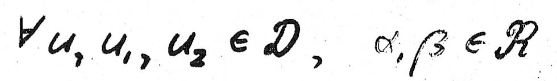 ∀ u, u₁, u₂ ∈ D, α, β ∈ R